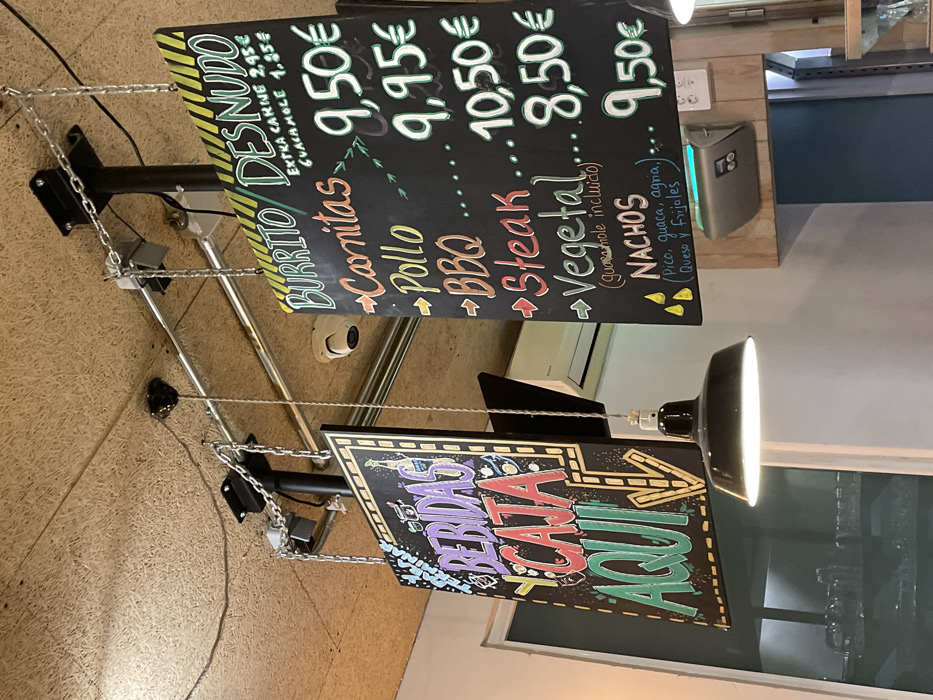 BURRITO/DESNUDO
EXTRA CARNE 2,95€
GUACAMOLE 1,85€
Carnitas 9,50€
Pollo 9,95€
BBQ ..... 10,50€
Steak ... 8,50€
Vegetal....
(guacamole incluido)
NACHOS ... 9,50€
(Pico, guaca, agria,
Queso y frijoles)
BEBIDAS
Y CAJA
AQUÍ